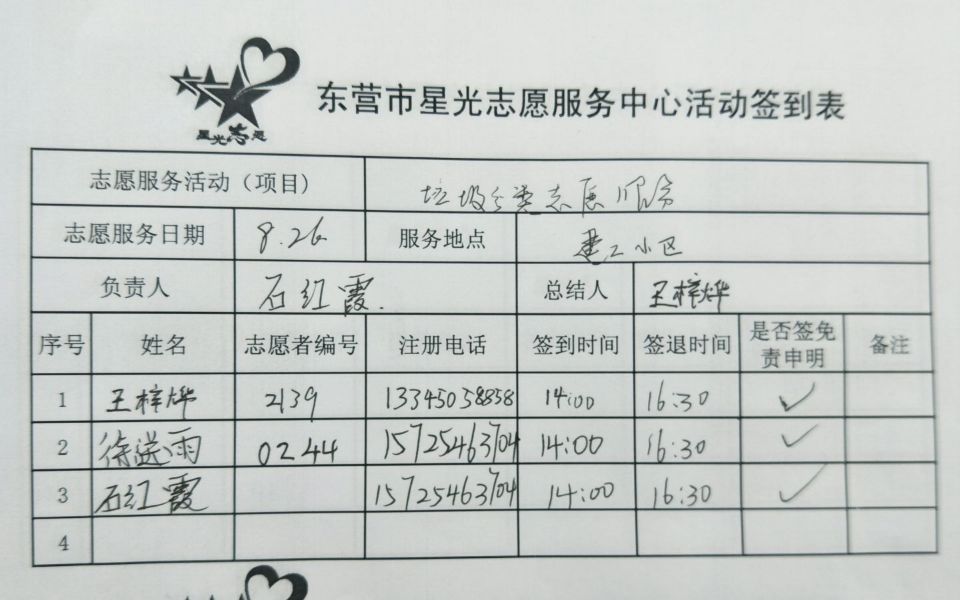 星光志愿
东营市星光志愿服务中心活动签到表
志愿服务活动（项目） 垃圾分类志愿服务
志愿服务日期 8.26 服务地点 建工小区
负责人 石红霞. 总结人 王梓烨
序号 姓名 志愿者编号 注册电话 签到时间 签退时间 是否签免责申明 备注
1 王梓烨 2139 13345058858 14:00 16:30 ✓
2 徐 雨 0244 15725463704 14:00 16:30 ✓
3 石红霞 15725463704 14:00 16:30 ✓
4